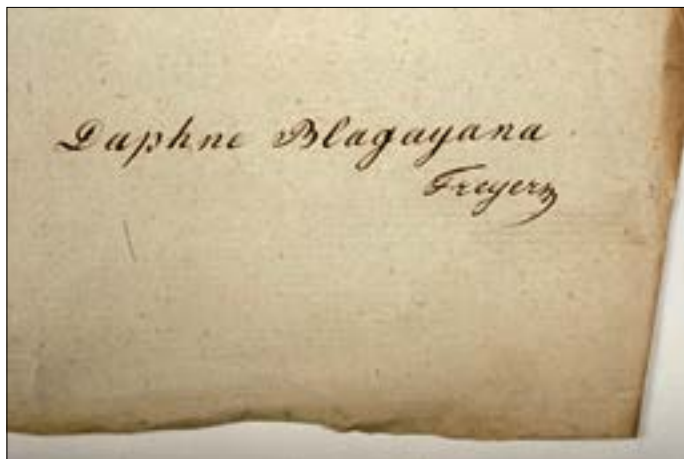 Daphne Blagayana
Freyer